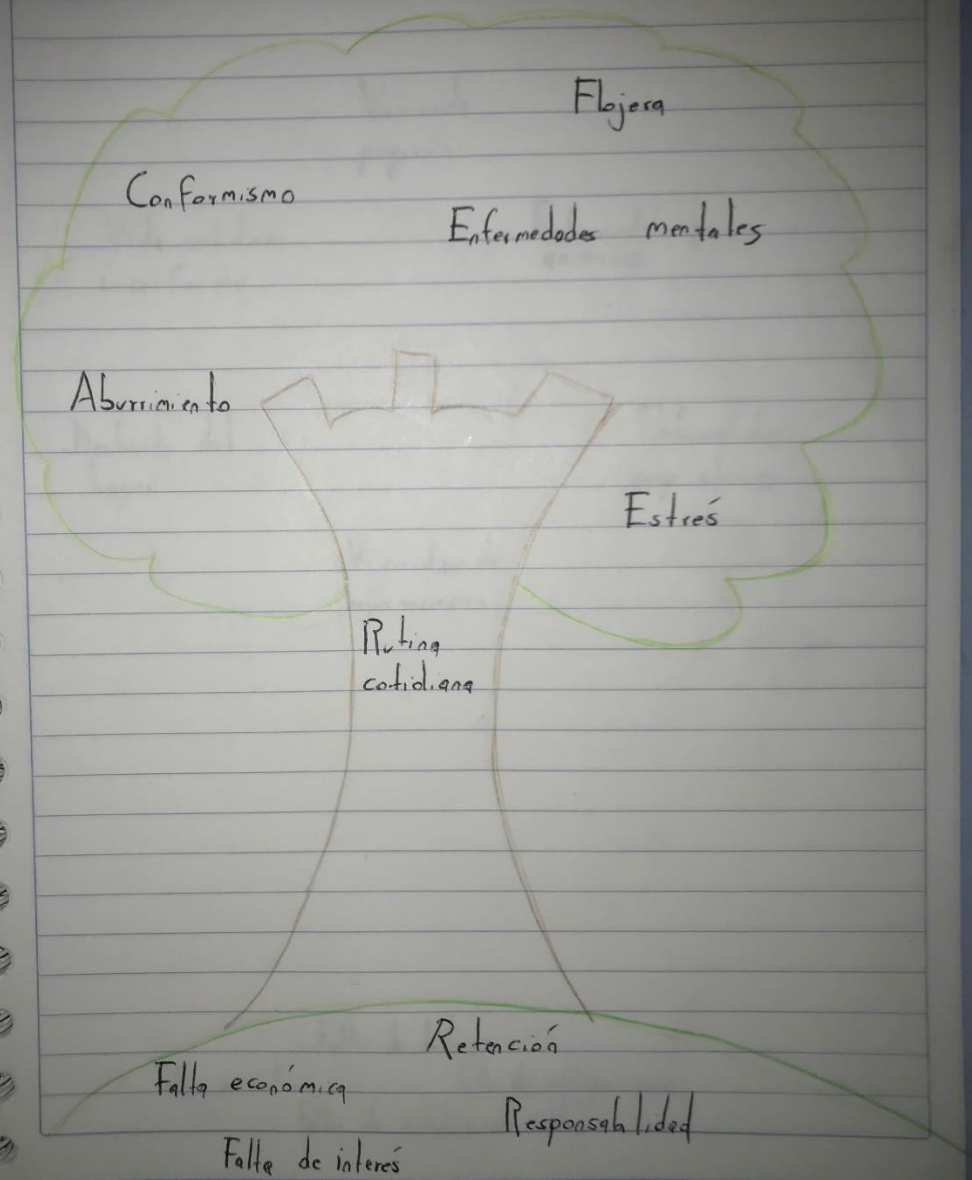 Flojera
Conformismo
Enfermedades mentales
Aburrimiento
Estrés
Rutina
cotidiana
Retención
Falta económica
Responsabilidad
Falta de interés